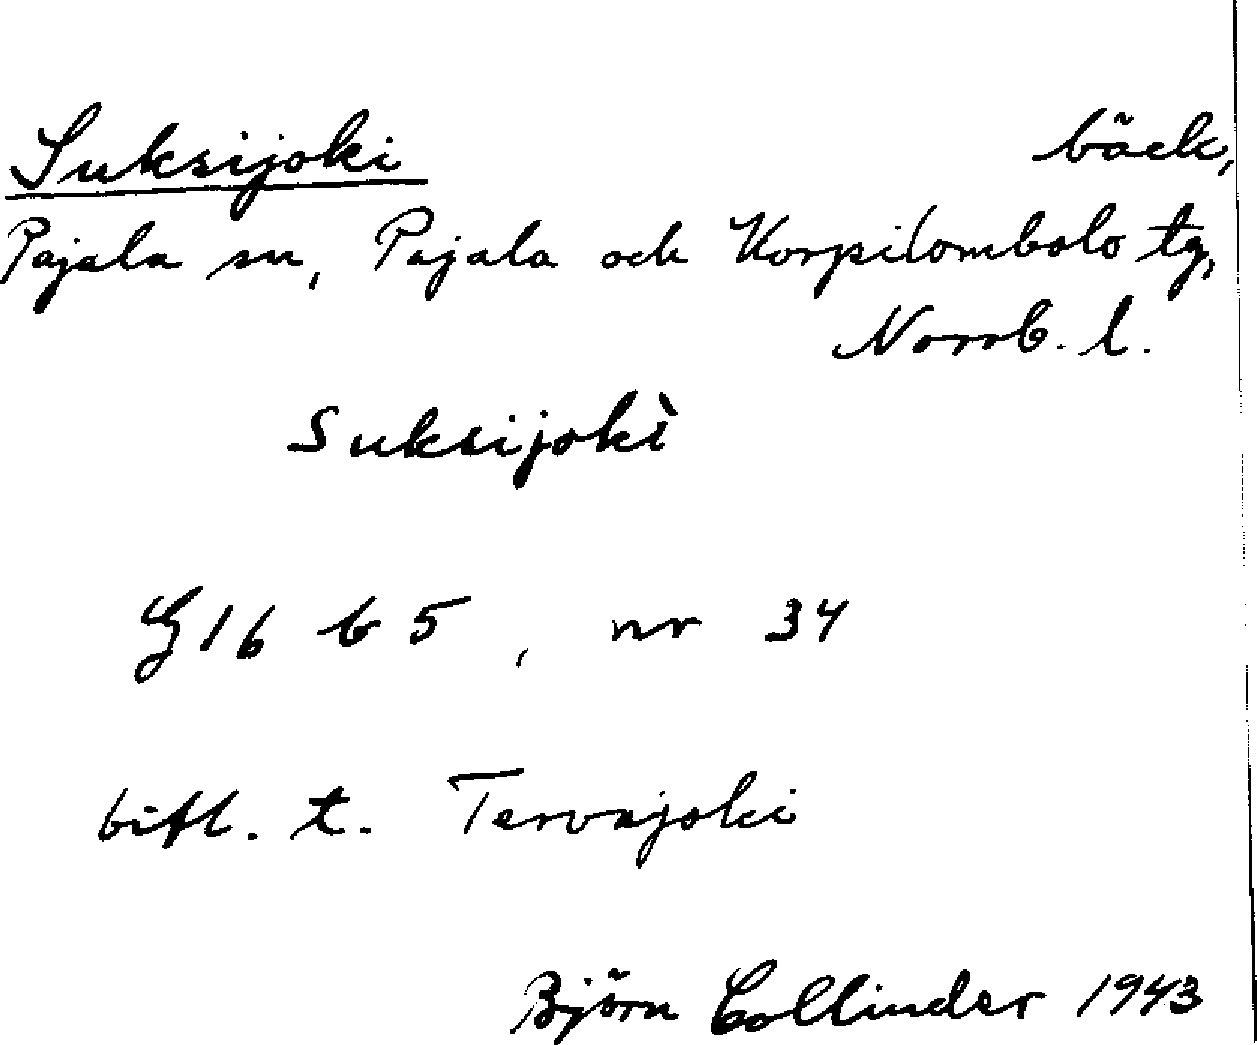 Suksijoki bäck,
Pajala sn, Pajala och Korpilombolo tg,
Norrb. l.
Suksijokì
G16 b 5, nr 34
bifl. t. Tervajoki
Björn Collinder 1943